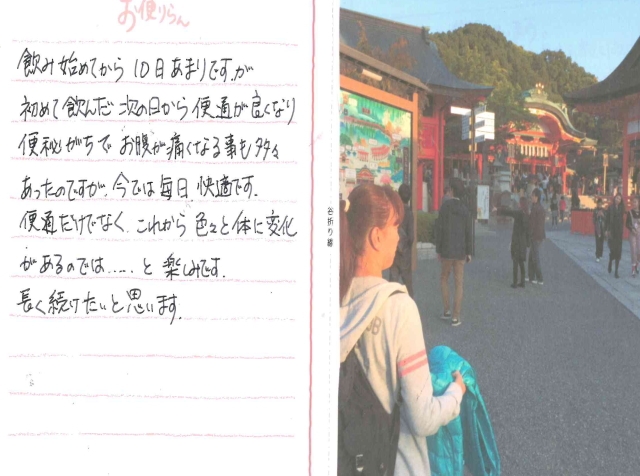 お便りらん
飲み始めてから 10日あまりですが
初めて飲んだ次の日から便通が良くなり
便秘がちで お腹が痛くなる事も多々
あったのですが、今では毎日 快適です。
便通だけでなく、これから 色々と体に変化
があるのでは..... と 楽しみです。
長く続けたいと思います。
谷折り線